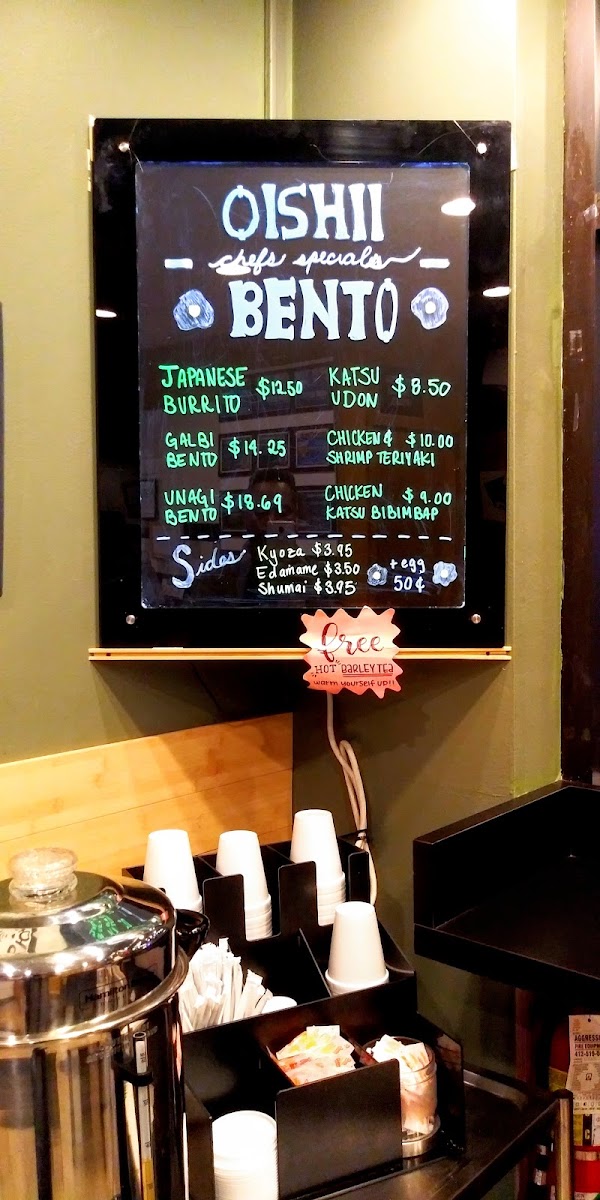 OISHII
chefs specials
BENTO
JAPANESE BURRITO $12.50
KATSU UDON $8.50
GALBI BENTO $14.25
CHICKEN & SHRIMP TERIYAKI $10.00
UNAGI BENTO $18.69
CHICKEN KATSU BIBIMBAP $9.00
Sides
Kyoza $3.95
Edamame $3.50
Shumai $3.95
+egg
50¢
free
"HOT" BARLEY TEA
warm yourself up!!
Hamilton
AGGRESSI
FIRE EQUIPM